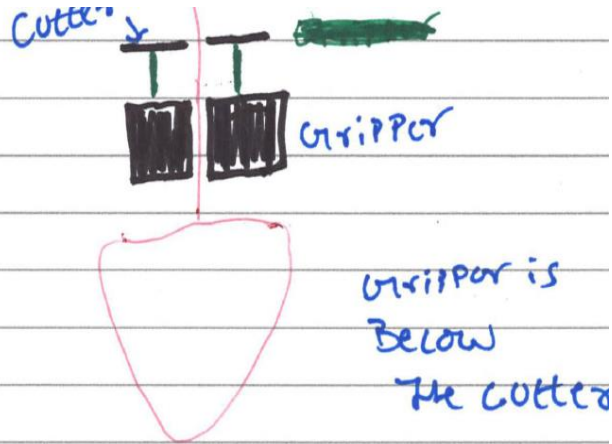 Cutter
Gripper
Gripper is
Below
The cutter